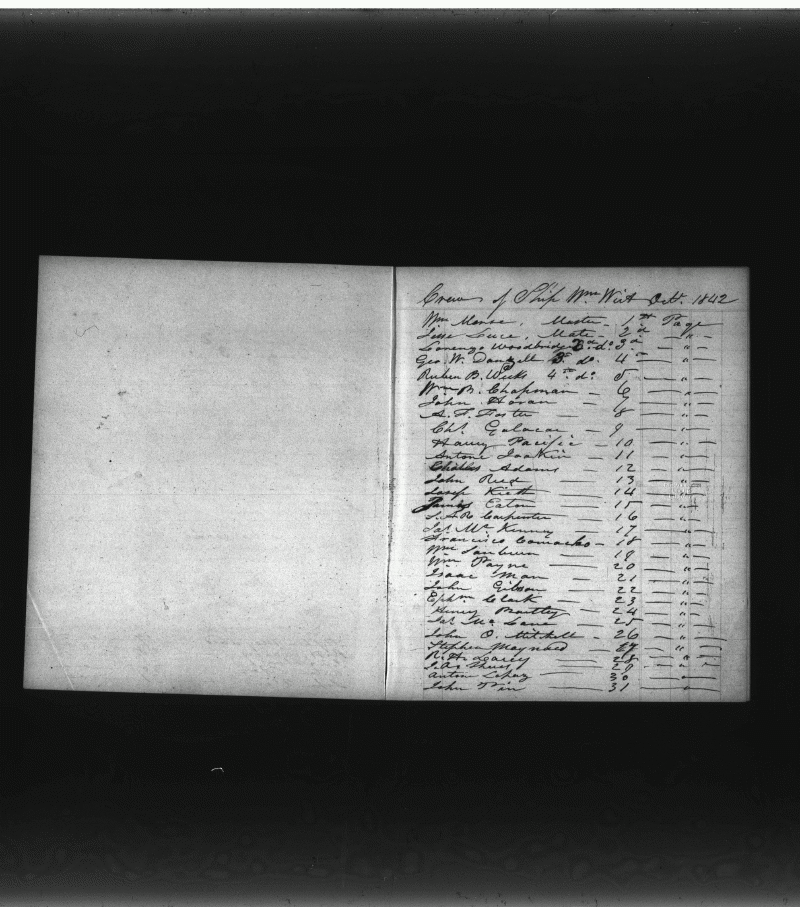 Crew of Ship Wm Wirt Octr. 1842
Wm Morse, Master - 1st Page
Jesse Luce, Mate - 2d - " -
Lorenzo Woodbridge 2d do 3d
Geo. W. Dantzell 3d do. 4 — " —
Reuben B. Weeks 4th do 5 — " —
Wm B. Chapman — 6 — " —
John Horan — 7 — " —
A. F. Foster — 8 — " —
Chs. — 9 — " —
Harry Pacific — 10 — " —
Antone Joakin — 11 — " —
Charles Adams — 12 — " —
John Reed — 13 — " —
Josep Kieth — 14 — " —
James Eaton — 15 — " —
Carpenter — 16 — " —
Jas. Mc Kenney — 17 — " —
Francisco Comacho — 18 — " —
Wm Sanburn — 19 — " —
Wm Payne — 20 — " —
Isaac Man — 21 — " —
John Gibson — 22 — " —
Ephm Clark — 23 — " —
Henry Bartley — 24 — " —
Jas Mc Lane — 25 — " —
John O. Mitchell — 26 — " —
Stephen Maynard — 27 — " —
R. H. — 28 — " —
29 — " —
Antone — 30 — " —
John — 31 — " —